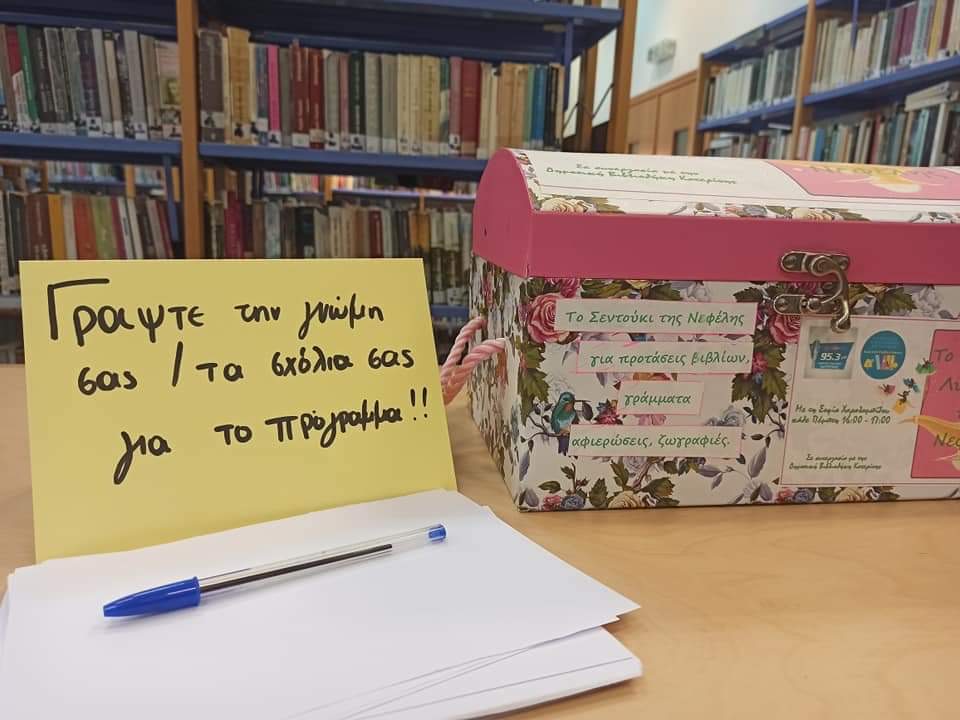 Γράψτε την γνώμη
σας / τα σχόλια σας
για το πρόγραμμα!!
Σε συνεργασία με την
Δημοτική Βιβλιοθήκη Κατερίνης
Το Σεντούκι της Νεφέλης
για προτάσεις βιβλίων,
γράμματα
αφιερώσεις, ζωγραφιές.
95.3
Με τη Σοφία
κάθε Πέμπτη 16:00 - 17:00
Σε συνεργασία με την
Δημοτική Βιβλιοθήκη Κατερίνης
Το